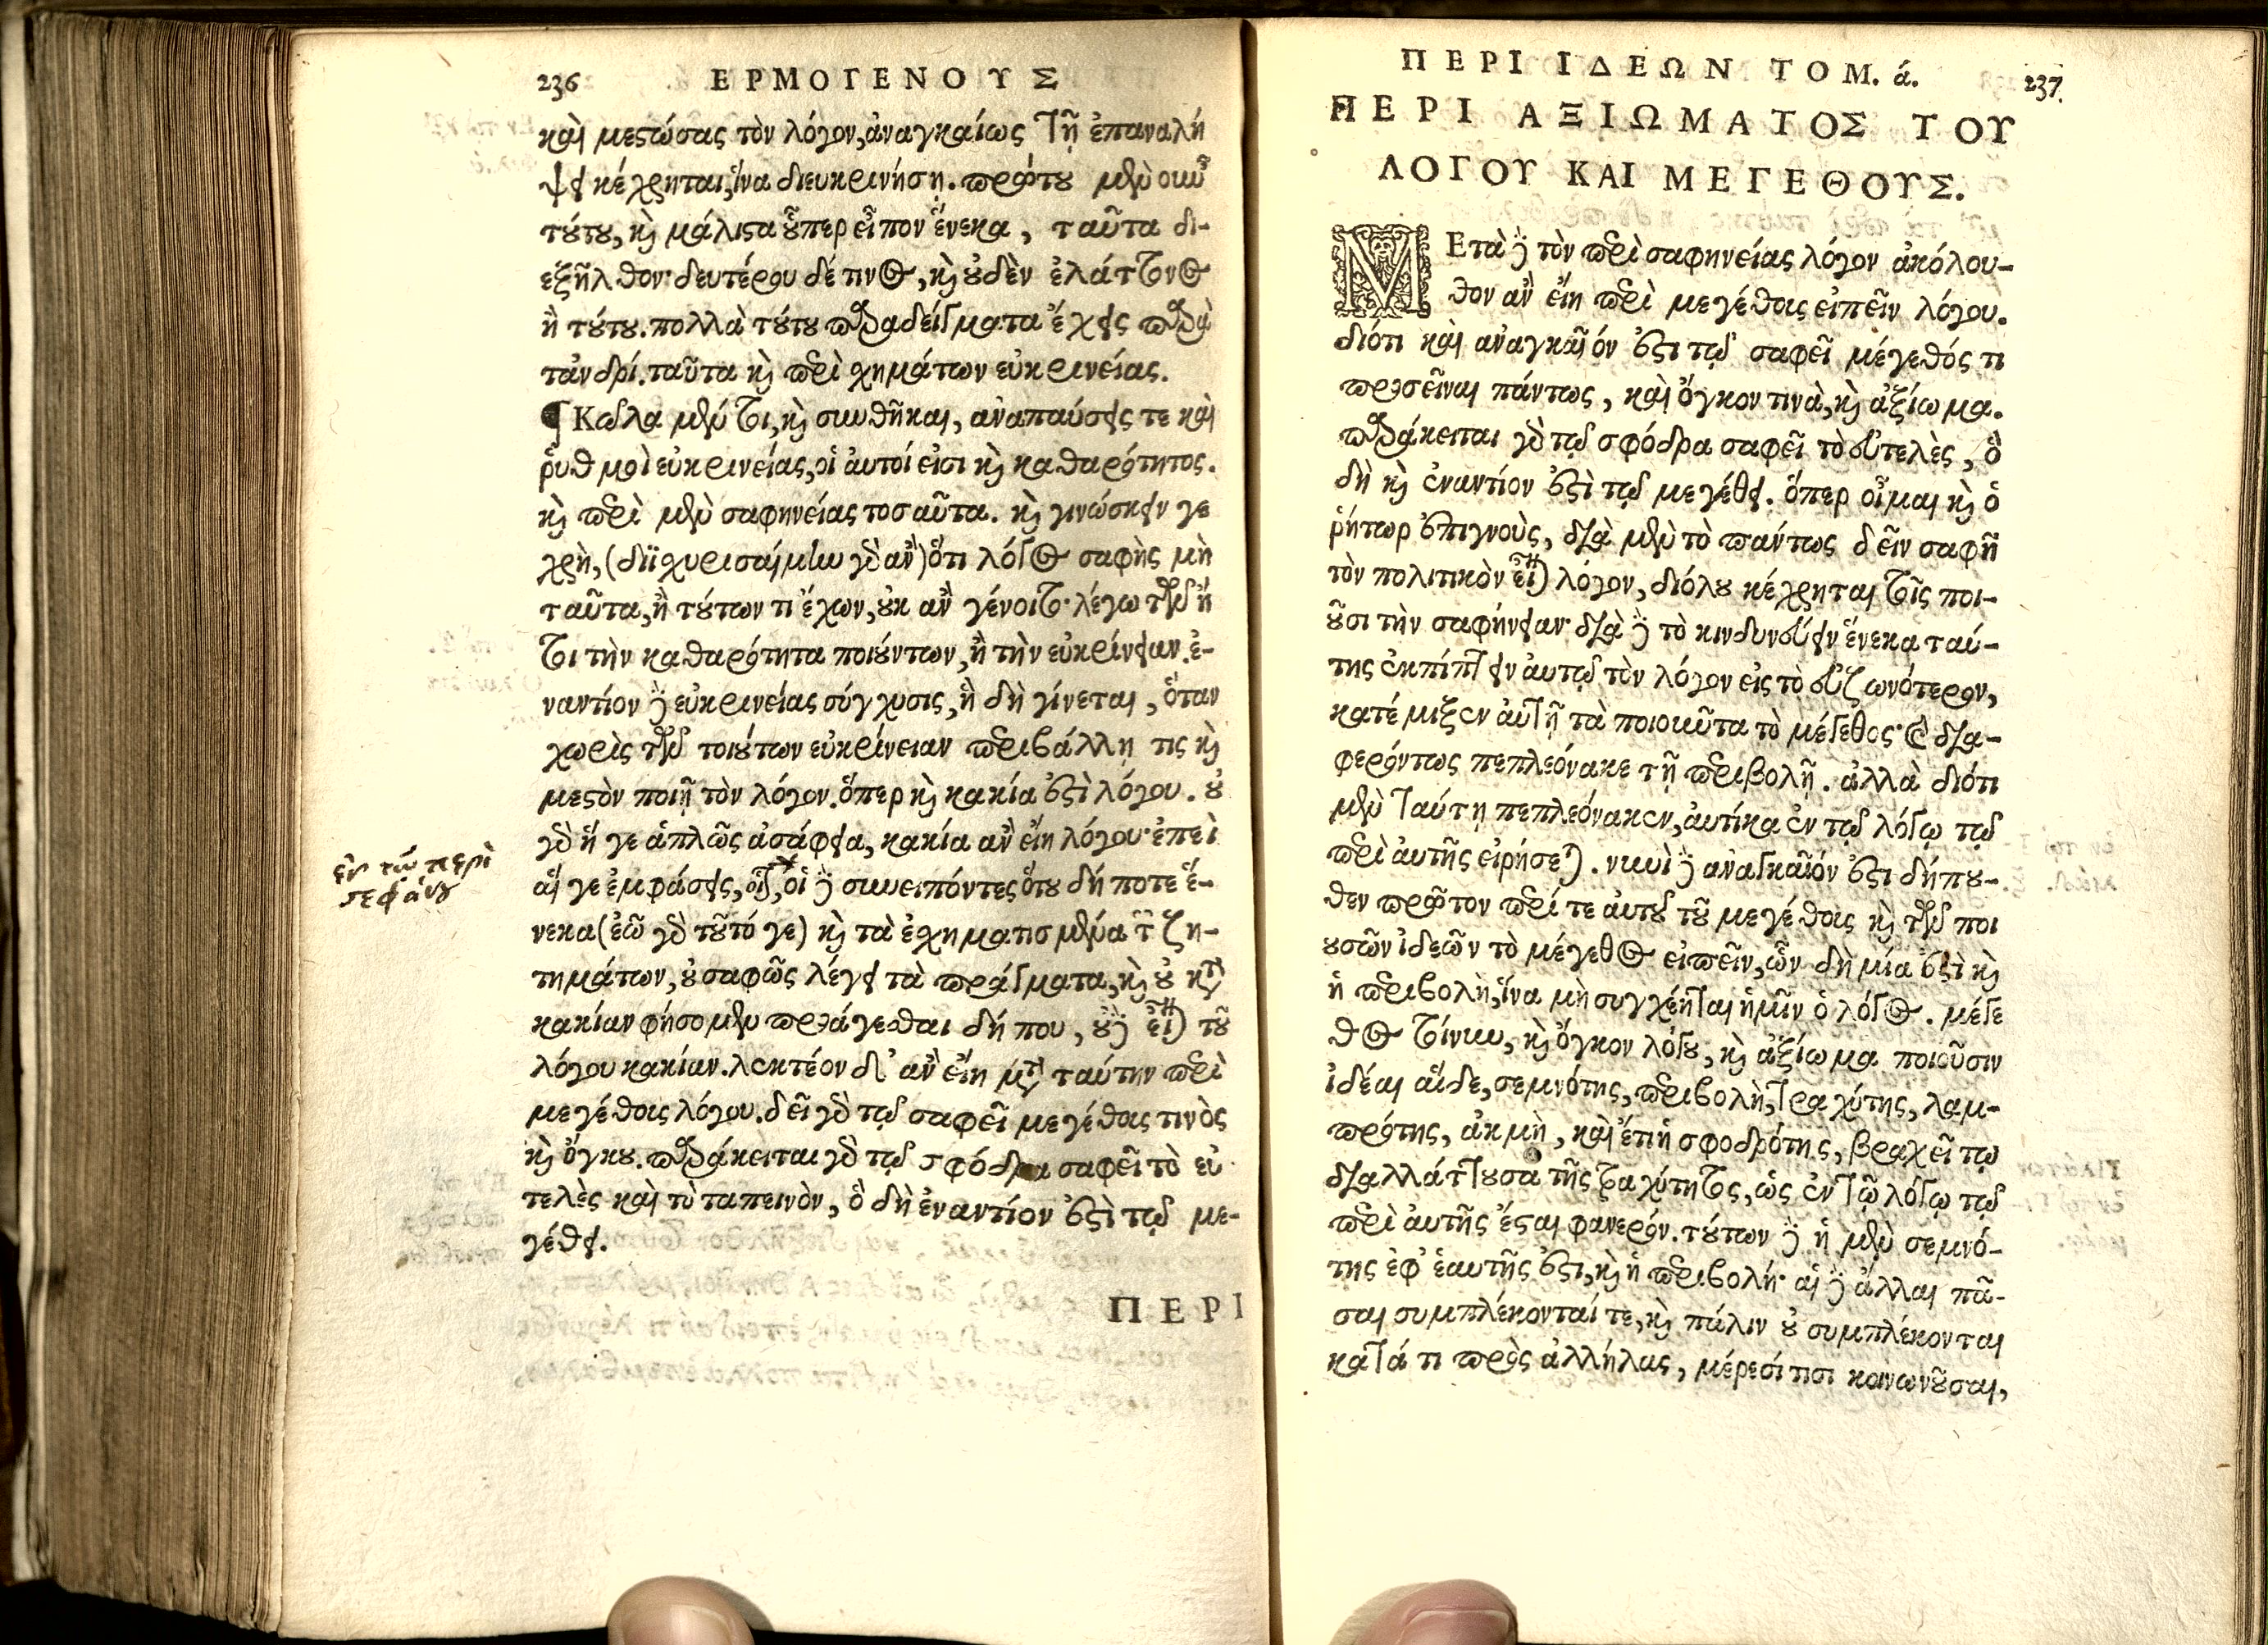 236 ΕΡΜΟΓΕΝΟΥΣ
καὶ μεστώσας τὸν λόγον, ἀναγκαίως τῇ ἐπαναλή
ψει κέχρηται, ἵνα διευκρινήσῃ. πρώτου μὲν οὖν
τούτου, καὶ μάλιστα οὗπερ εἶπον ἕνεκα, ταῦτα δι-
εξῆλθον· δευτέρου δέ τινος, καὶ οὐδὲν ἐλάττονος
ἢ τούτου. πολλὰ τούτου παραδείγματα ἔχεις παρὰ
τἀνδρί. ταῦτα καὶ περὶ σχημάτων εὐκρινείας.
¶ Κῶλα μέν τοι, καὶ συνθῆκαι, ἀναπαύσεις τε καὶ
ῥυθμοὶ εὐκρινείας, οἱ αὐτοί εἰσι καὶ καθαρότητος.
καὶ περὶ μὲν σαφηνείας τοσαῦτα. καὶ γινώσκειν γε
χρὴ, (διϊσχυρισαίμην γὰρ ἂν) ὅτι λόγος σαφὴς μὴ
ταῦτα, ἢ τούτων τι ἔχων, οὐκ ἂν γένοιτο· λέγω τῶν ἤ
τοι τὴν καθαρότητα ποιούντων, ἢ τὴν εὐκρίνειαν. ἐ-
ναντίον δὲ εὐκρινείας σύγχυσις, ἣ δὴ γίνεται, ὅταν
χωρὶς τῶν τοιούτων εὐκρίνειαν περιβάλλῃ τις καὶ
μεστὸν ποιῇ τὸν λόγον. ὅπερ καὶ κακία ἐστὶ λόγου. οὐ
γὰρ ἥ γε ἁπλῶς ἀσάφεια, κακία ἂν εἴη λόγου· ἐπεὶ
αἵ γε ἐμφάσεις, οἱ δὲ συνειπόντες ὅτου δή ποτε ἕ-
νεκα (ἐῶ γὰρ τοῦτό γε) καὶ τὰ ἐσχηματισμένα τῶν ζη-
τημάτων, οὐ σαφῶς λέγει τὰ πράγματα, καὶ οὐ κατὰ
κακίαν φήσομεν προάγεσθαι δή που, οὐδὲ εἶναι τοῦ
λόγου κακίαν. λεκτέον δ' ἂν εἴη μετὰ ταύτην περὶ
μεγέθους λόγου. δεῖ γὰρ τῷ σαφεῖ μεγέθους τινὸς
καὶ ὄγκου. παράκειται γὰρ τῷ σφόδρα σαφεῖ τὸ εὐ
τελὲς καὶ τὸ ταπεινὸν, ὃ δὴ ἐναντίον ἐστὶ τῷ με-
γέθει.
ΠΕΡΙ
ἐν τῷ περὶ
στεφάνου
ΠΕΡΙ ΙΔΕΩΝ ΤΟΜ. ά. 237.
ΠΕΡΙ ΑΞΙΩΜΑΤΟΣ ΤΟΥ
ΛΟΓΟΥ ΚΑΙ ΜΕΓΕΘΟΥΣ.
ΜΕτὰ δὲ τὸν περὶ σαφηνείας λόγον ἀκόλου-
θον ἂν εἴη περὶ μεγέθους εἰπεῖν λόγου.
διότι καὶ ἀναγκαῖόν ἐστι τῷ σαφεῖ μέγεθός τι
προσεῖναι πάντως, καὶ ὄγκον τινὰ, καὶ ἀξίωμα.
παράκειται γὰρ τῷ σφόδρα σαφεῖ τὸ εὐτελὲς, ὃ
δὴ καὶ ἐναντίον ἐστὶ τῷ μεγέθει. ὅπερ οἶμαι καὶ ὁ
ῥήτωρ ἐπιγνοὺς, διὰ μὲν τὸ πάντως δεῖν σαφῆ
τὸν πολιτικὸν εἶναι λόγον, διόλου κέχρηται τοῖς ποι-
οῦσι τὴν σαφήνειαν· διὰ δὲ τὸ κινδυνεύειν ἕνεκα ταύ-
της ἐκπίπτειν αὐτῷ τὸν λόγον εἰς τὸ εὐζωνότερον,
κατέμιξεν αὐτῇ τὰ ποιοῦντα τὸ μέγεθος· καὶ δια-
φερόντως πεπλεόνακε τῇ περιβολῇ. ἀλλὰ διότι
μὲν ταύτῃ πεπλεόνακεν, αὐτίκα ἐν τῷ λόγῳ τῷ
περὶ αὐτῆς εἰρήσεται. νυνὶ δὲ ἀναγκαῖόν ἐστι δήπου-
θεν πρῶτον περί τε αὐτοῦ τοῦ μεγέθους καὶ τῶν ποι
ουσῶν ἰδεῶν τὸ μέγεθος εἰπεῖν, ὧν δὴ μία ἐστὶ καὶ
ἡ περιβολὴ, ἵνα μὴ συγχέηται ἡμῖν ὁ λόγος. μέγε
θος τοίνυν, καὶ ὄγκον λόγου, καὶ ἀξίωμα ποιοῦσιν
ἰδέαι αἵδε, σεμνότης, περιβολὴ, τραχύτης, λαμ-
πρότης, ἀκμὴ, καὶ ἔτι ἡ σφοδρότης, βραχεῖ τῳ
διαλλάττουσα τῆς τραχύτητος, ὡς ἐν τῷ λόγῳ τῷ
περὶ αὐτῆς ἔσται φανερόν. τούτων δὲ ἡ μὲν σεμνό-
της ἐφ' ἑαυτῆς ἐστι, καὶ ἡ περιβολή· αἱ δὲ ἄλλαι πᾶ-
σαι συμπλέκονταί τε, καὶ πάλιν οὐ συμπλέκονται
κατά τι πρὸς ἀλλήλας, μέρεσί τισι κοινωνοῦσαι,